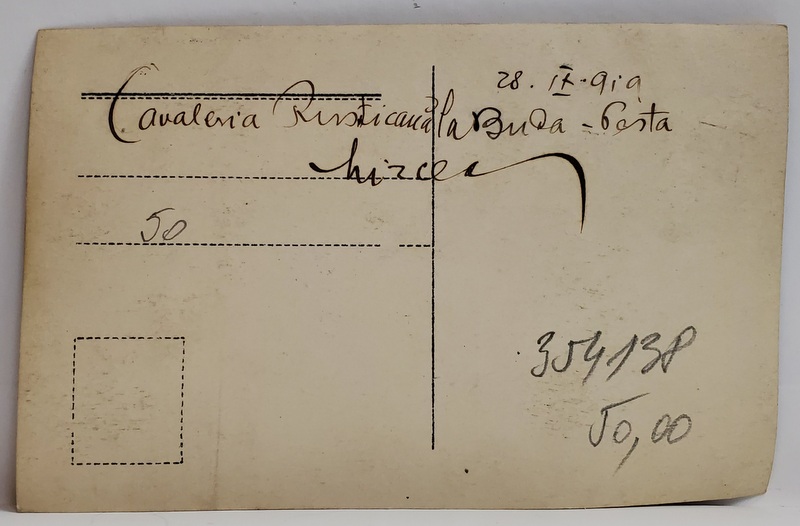 28. IX. 919
Cavaleria Rusticană la Buda-Pesta
Mircea
50
354138
50,00